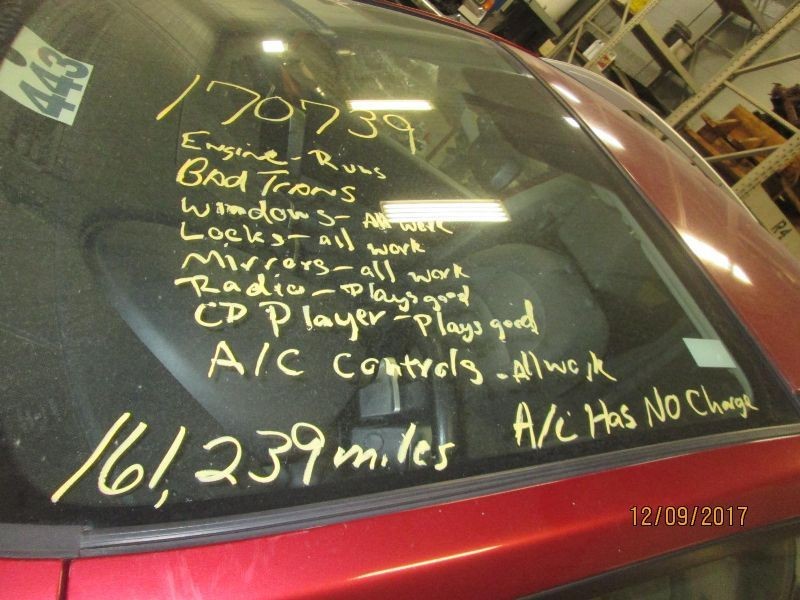 443
170739
Engine - Runs
Bad Trans
Windows - All work
Locks - all work
Mirrors - all work
Radio - Plays good
CD Player - Plays good
A/C Controls - All work
A/C Has NO Charge
161,239 miles
R4
12/09/2017